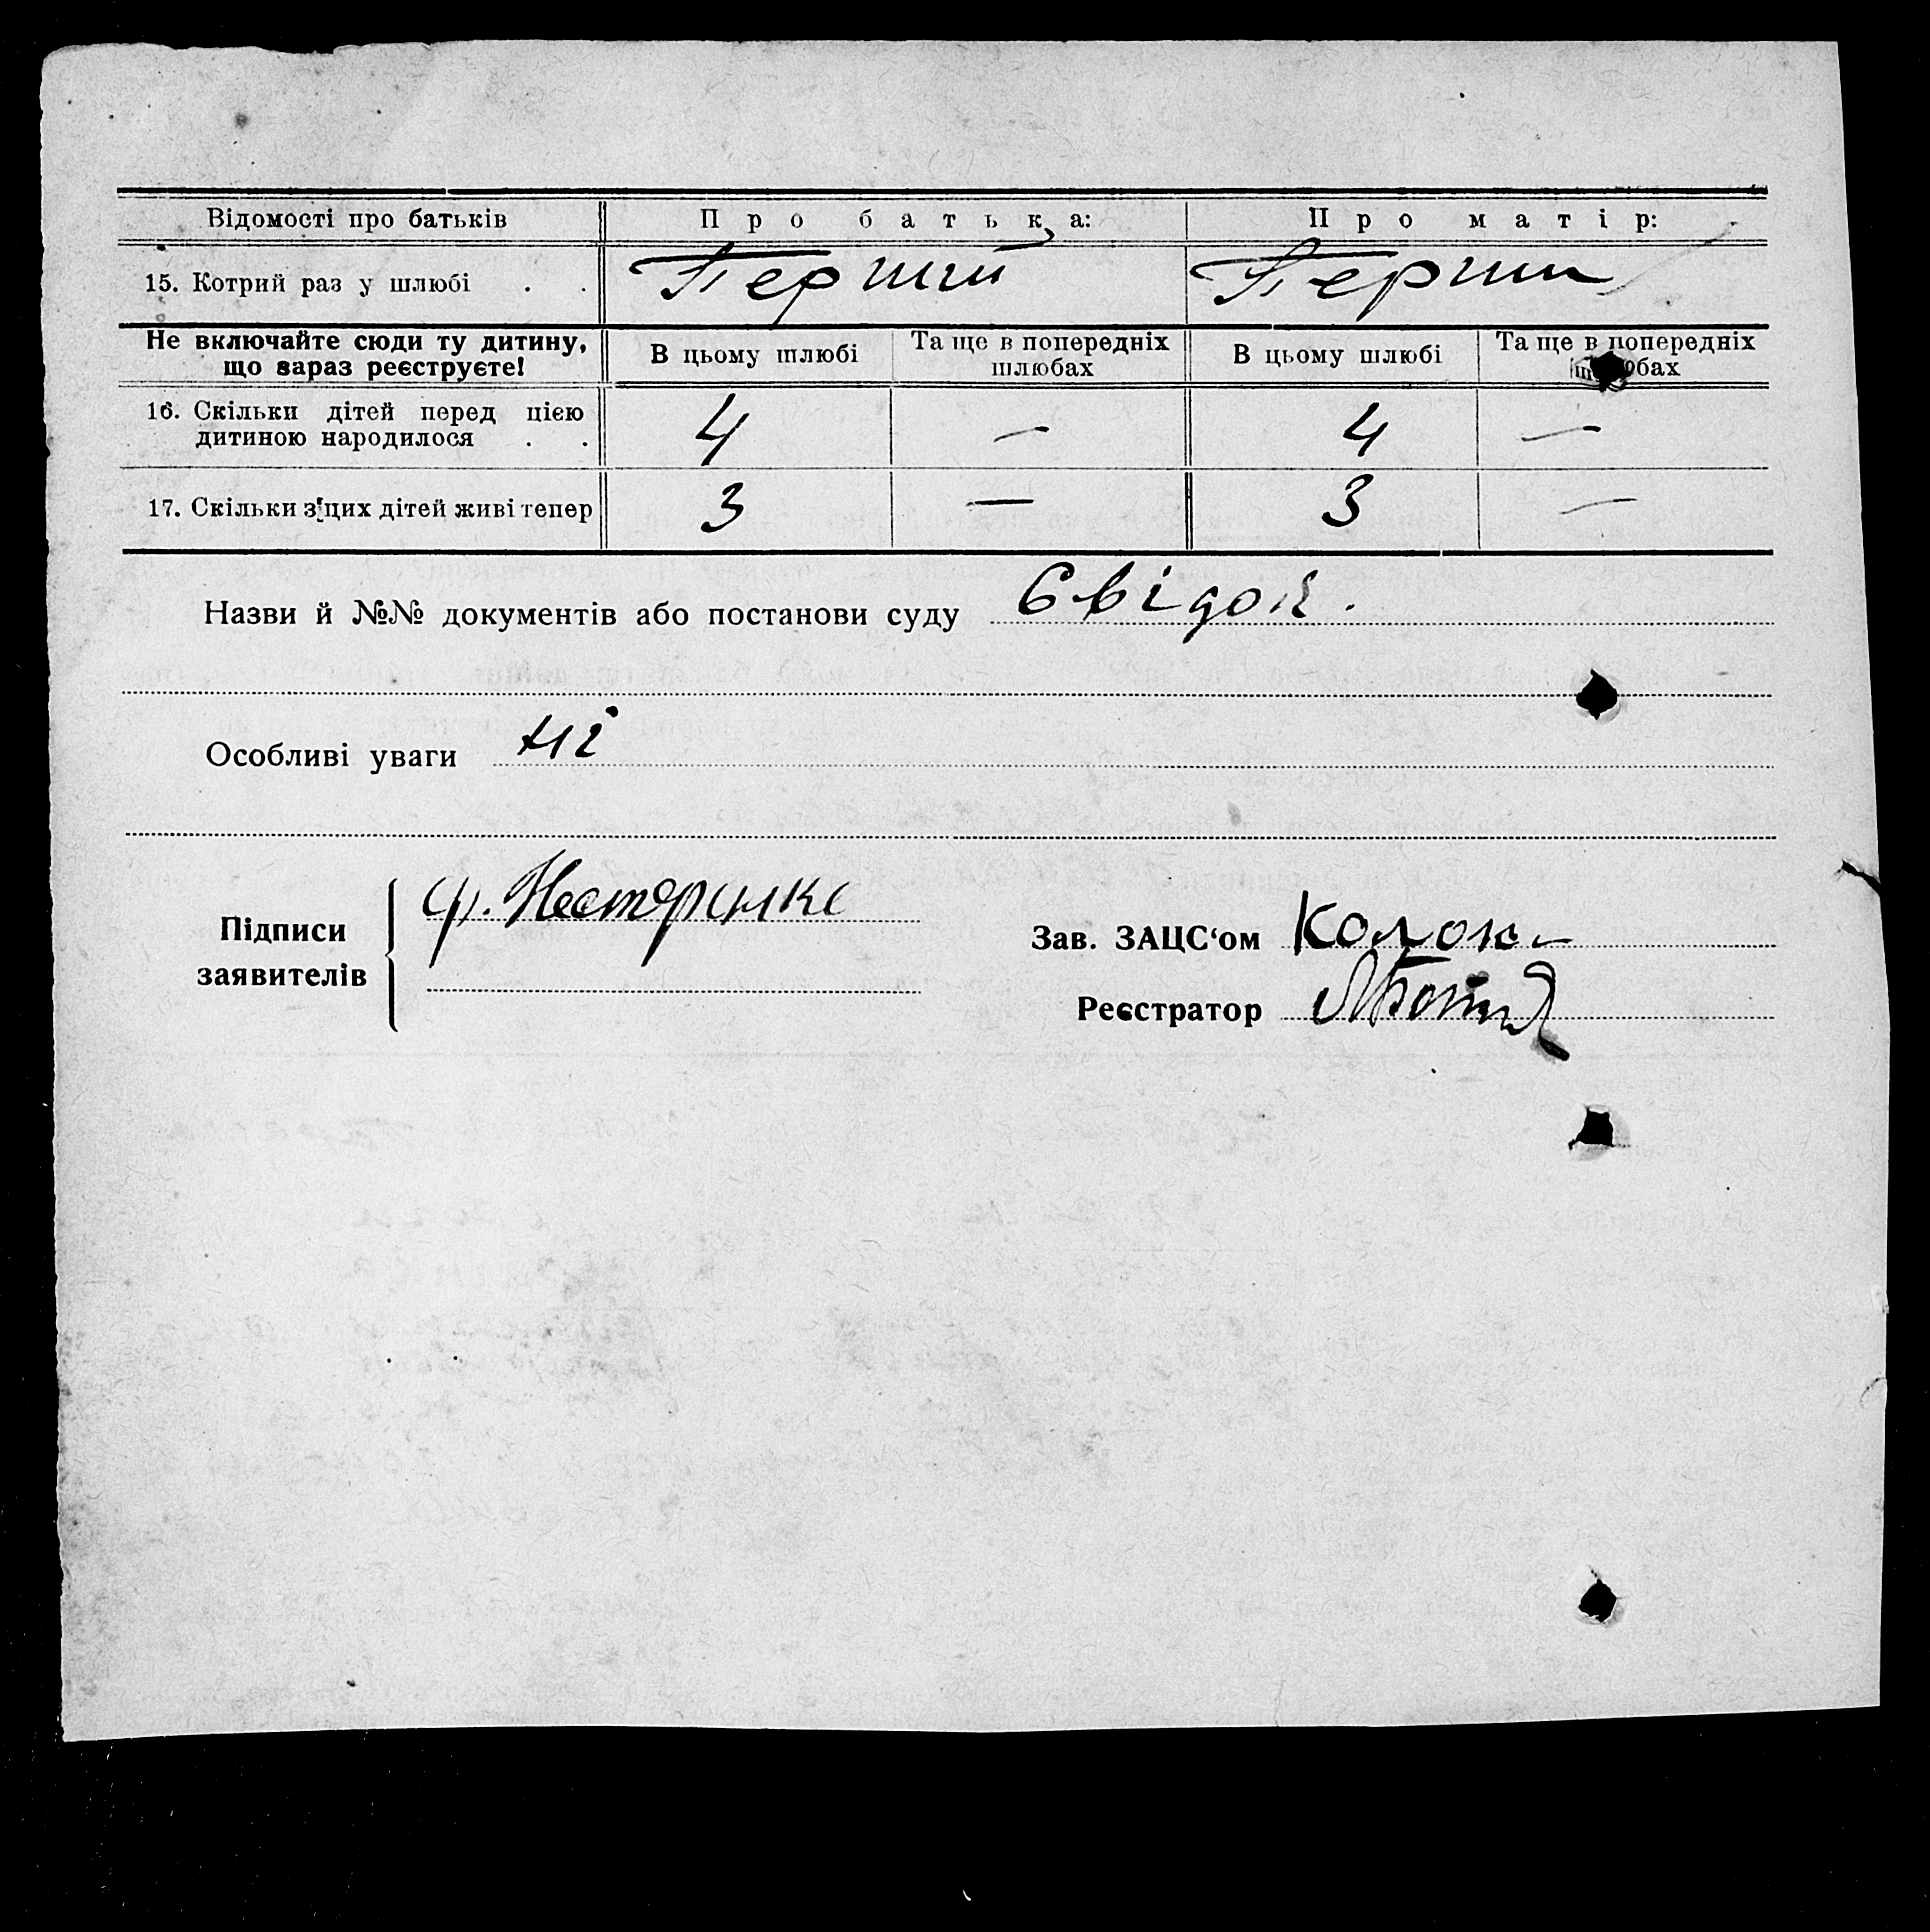 Відомості про батьків Про батька: Про матір:
15. Котрий раз у шлюбі . . Перший Перши
Не включайте сюди ту дитину, що зараз реєструєте! В цьому шлюбі Та ще в попередніх шлюбах В цьому шлюбі Та ще в попередніх шлюбах
16. Скільки дітей перед цією
дитиною народилося . . 4 — 4 —
17. Скільки з цих дітей живі тепер 3 — 3 —
Назви й №№ документів або постанови суду Свідок.
Особливі уваги ні
Підписи заявителів Ф. Нестеренко
Зав. ЗАЦС‘ом
Реєстратор